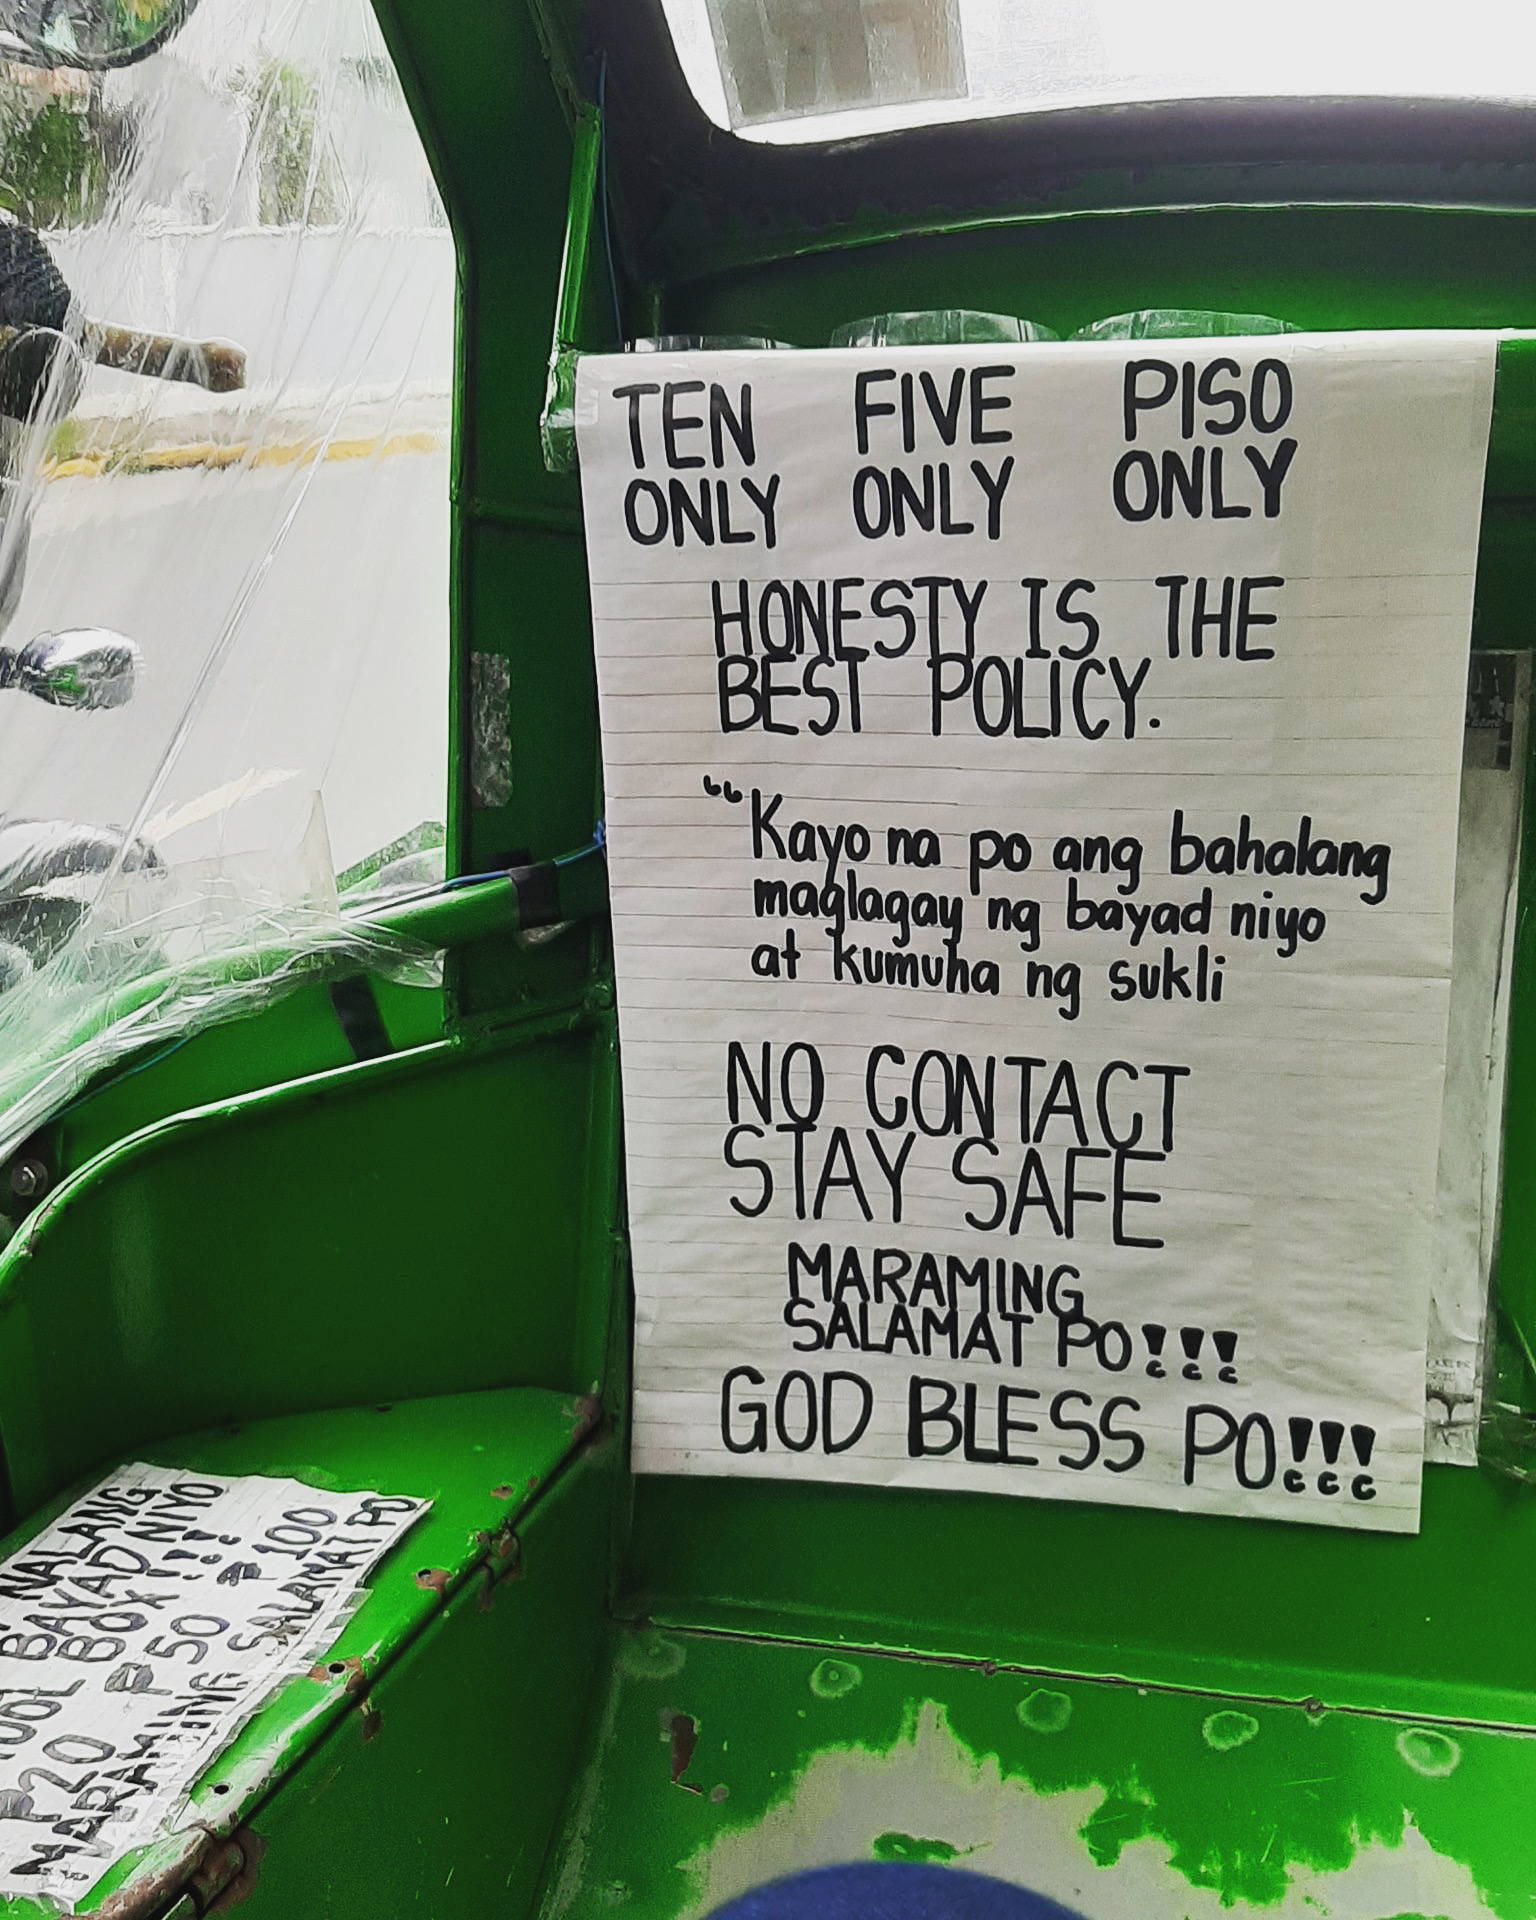 TEN FIVE PISO
ONLY ONLY ONLY
HONESTY IS THE
BEST POLICY.
“Kayo na po ang bahalang
maglagay ng bayad niyo
at kumuha ng sukli
NO CONTACT
STAY SAFE
MARAMING
SALAMAT PO!!!
GOD BLESS PO!!!
NALANG
BAYAD NIYO
BOX!!!
₱20 ₱50 ₱100
MARAMING SALAMAT PO